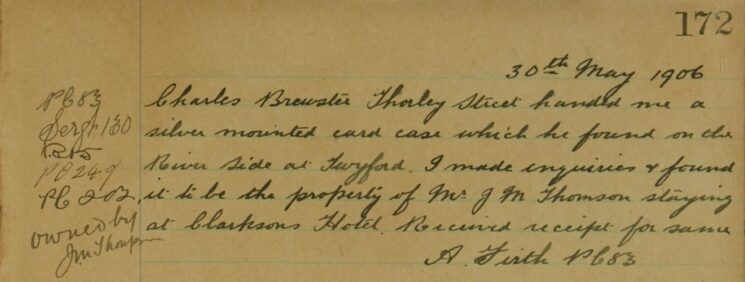 172
30th May 1906
PC83
Sergt 130
PC 249
PC 202
owned by
Jm Thompson
Charles Brewster Thorley Street handed me a
silver mounted card case which he found on the
River Side at Twyford. I made inquiries & found
it to be the property of Mr J M Thomson staying
at Clarksons Hotel. Received receipt for same
A. Firth PC83